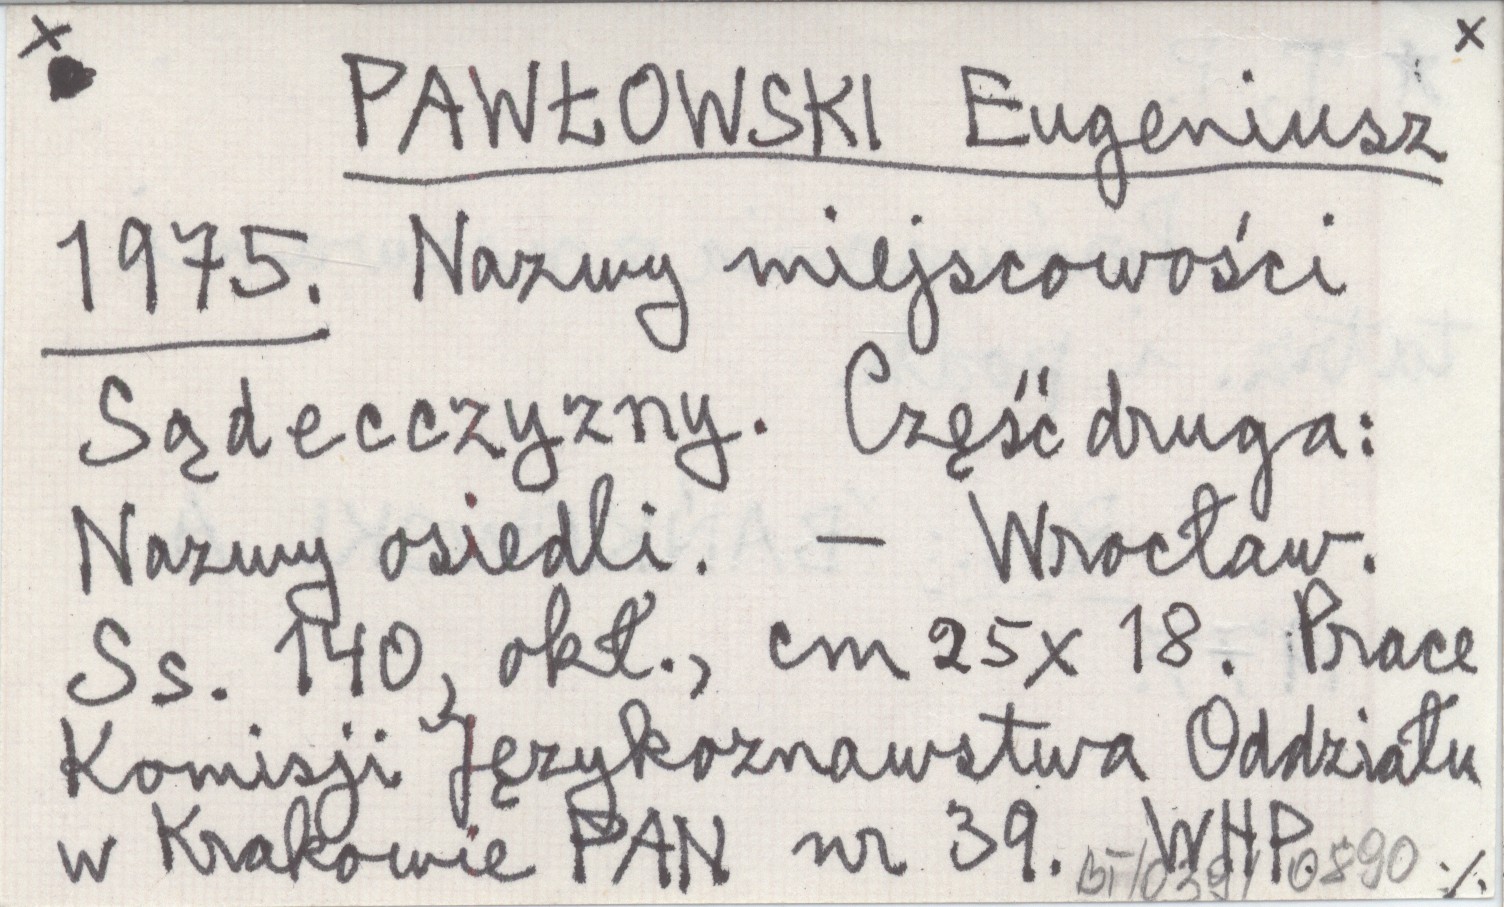 x x
PAWŁOWSKI Eugeniusz
1975. Nazwy miejscowości
Sądecczyzny. Część druga:
Nazwy osiedli. — Wrocław.
Ss. 140, okł., cm 25x18. Prace
Komisji Językoznawstwa Oddziału
w Krakowie PAN nr 39. WHP. ./.
0890